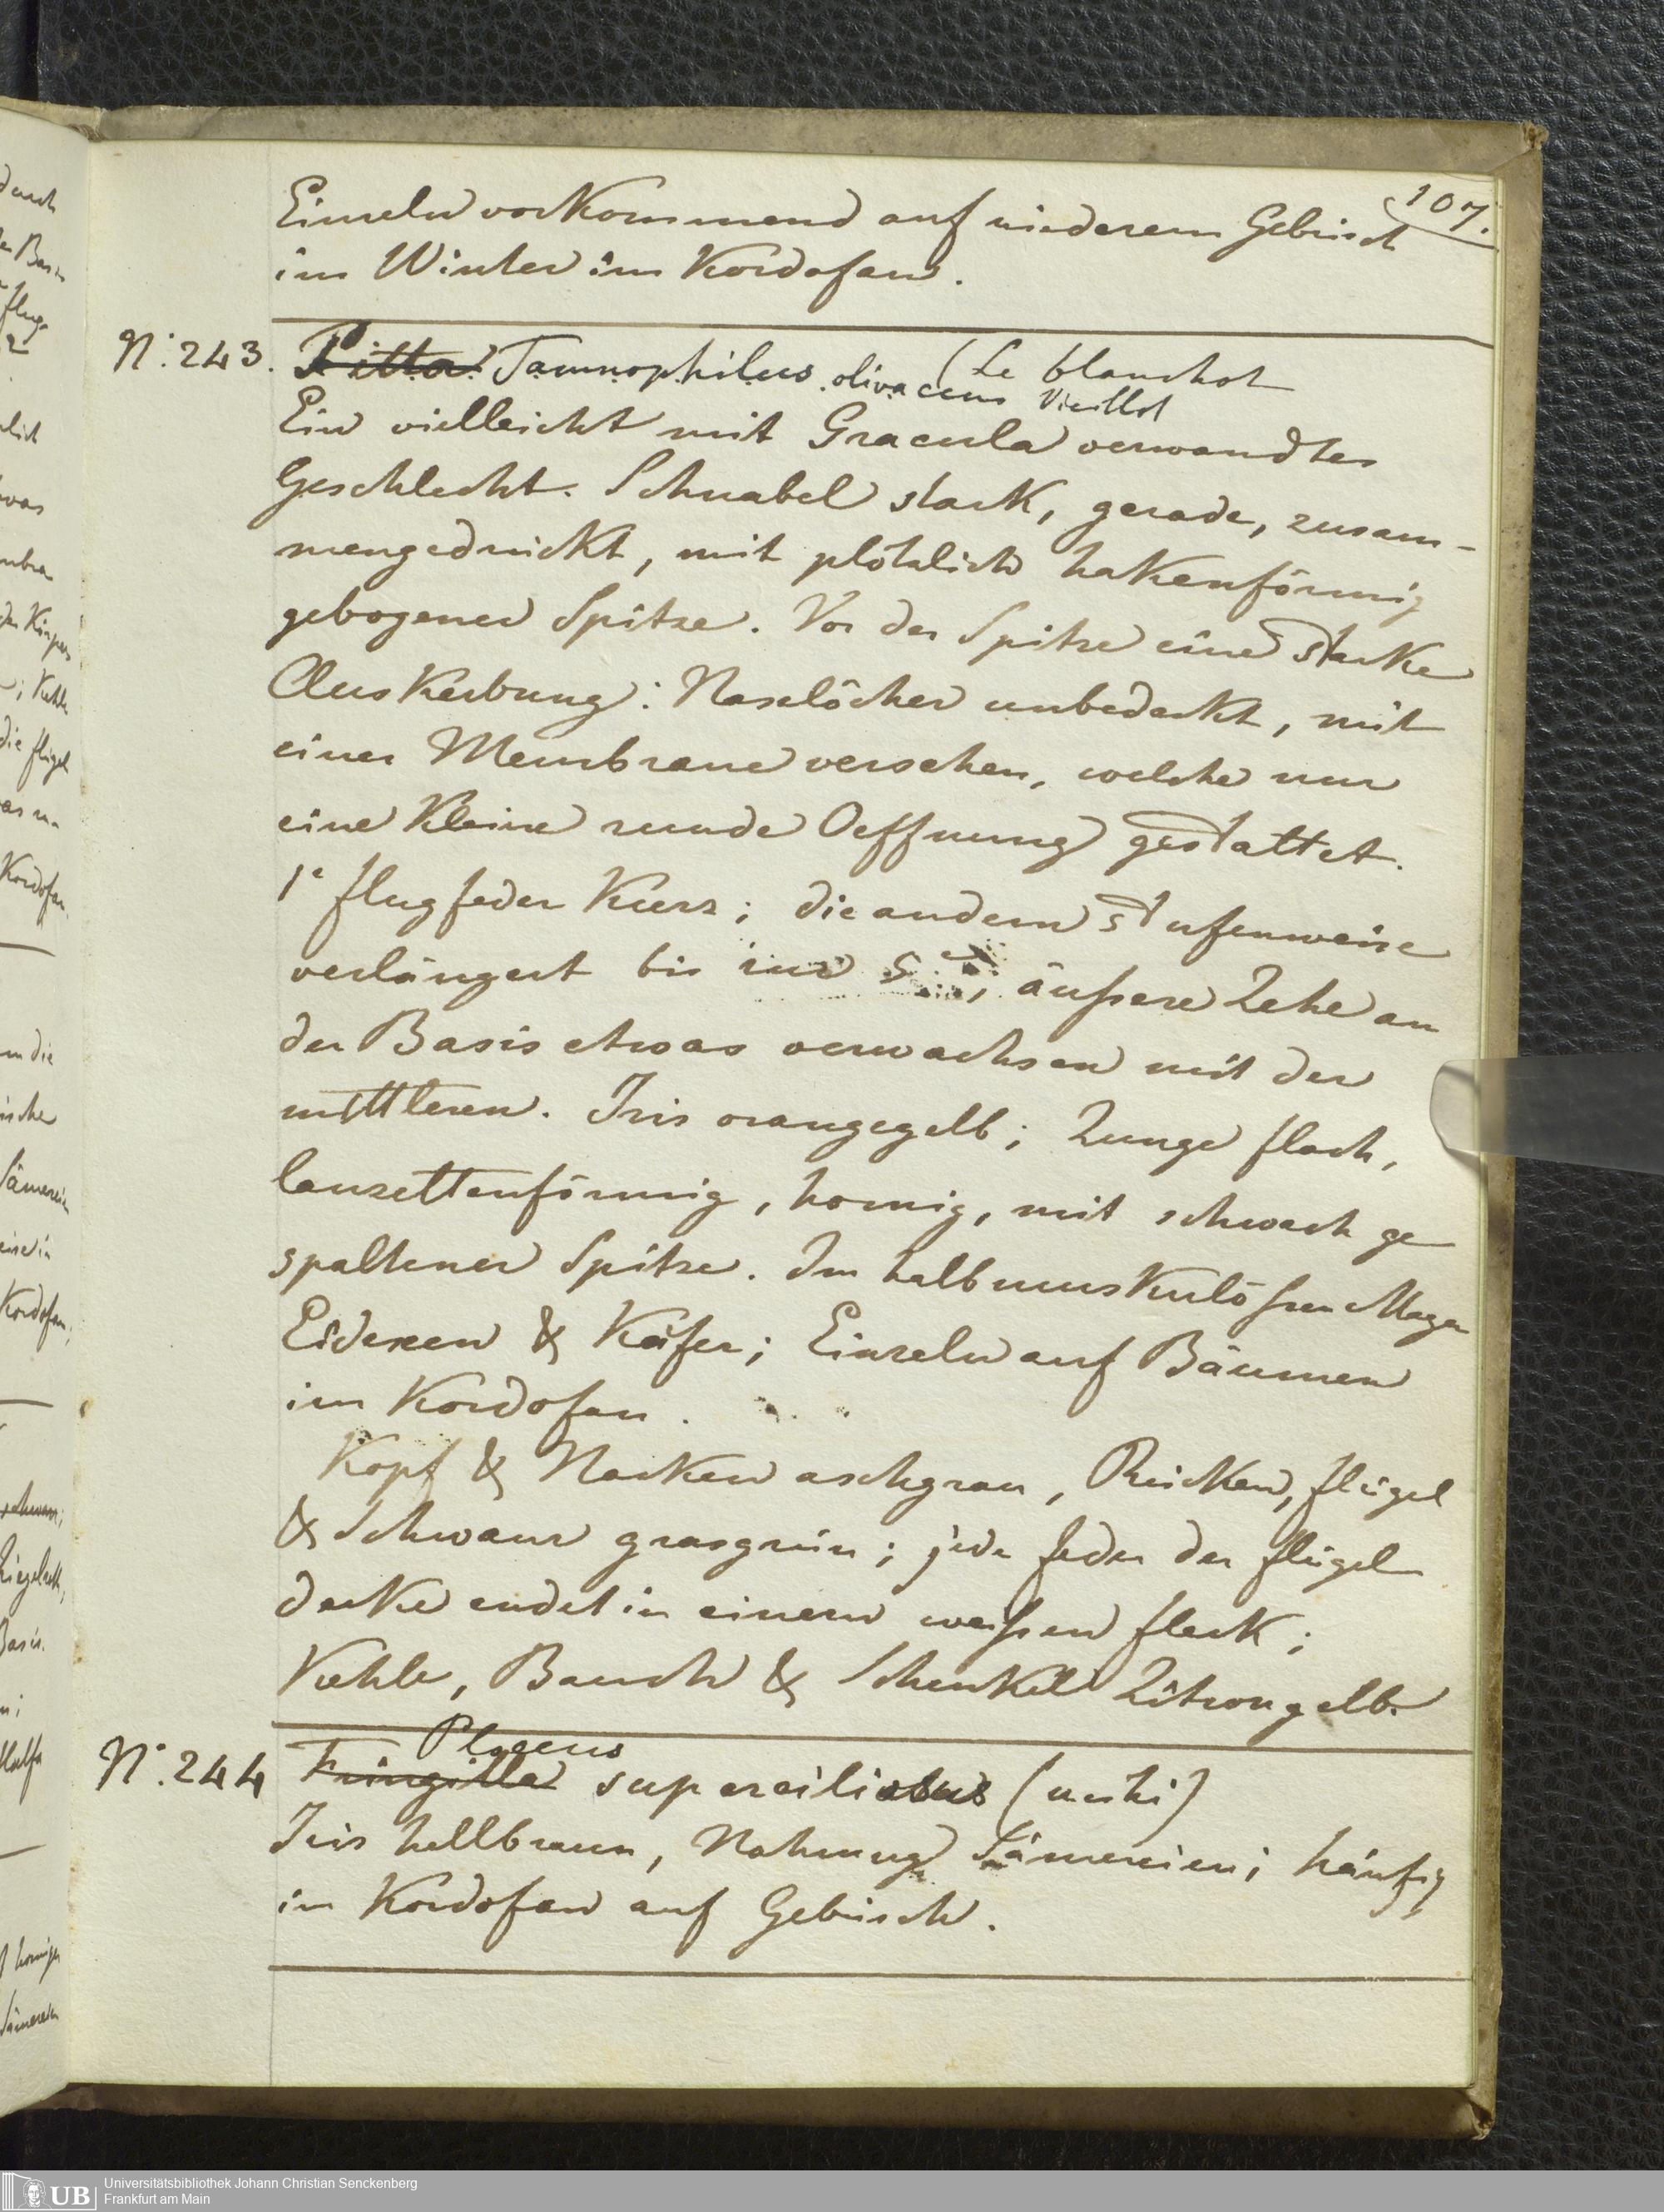 107.
Einzeln vorkommend auf niederem Gebüsch
im Winter im Kordofan.
N. 243. Pitta Tamnophilus olivaceus (Le blanchot
Vieillot
Ein vielleicht mit Gracula verwandtes
Geschlecht. Schnabel stark, gerade, zusam-
mengedrückt, mit plötzlich hakenförmig
gebogener Spitze. Vor der Spitze eine starke
Auskerbung: Naselöcher unbedeckt, mit
einer Membrane versehen, welche nur
eine kleine runde Oeffnung gestattet.
1e flugfeder kurz; die andern stufenweise
verlängert bis zur 5, äußere Zehe an
der Basis etwas verwachsen mit der
mittleren. Iris orangegelb; Zunge flach,
lanzettenförmig, hornig, mit schwach ge
spaltener Spitze. Im halb muskulößen Magen
Eidexen & Käfer; Einzeln auf Bäumen
im Kordofan.
Kopf & Nacken aschgrau, Rücken, flügel
& Schwanz grasgrün; jede feder der flügel
decke endet in einem weißen fleck;
Kehle, Bauch & Schenkel Zitrongelb.
Ploceus
N. 244 Fringilla superciliosus (mihi)
Iris hellbraun, Nahrung Sämereien; häufig
in Kordofan auf Gebüsch.
UB Universitätsbibliothek Johann Christian Senckenberg
Frankfurt am Main